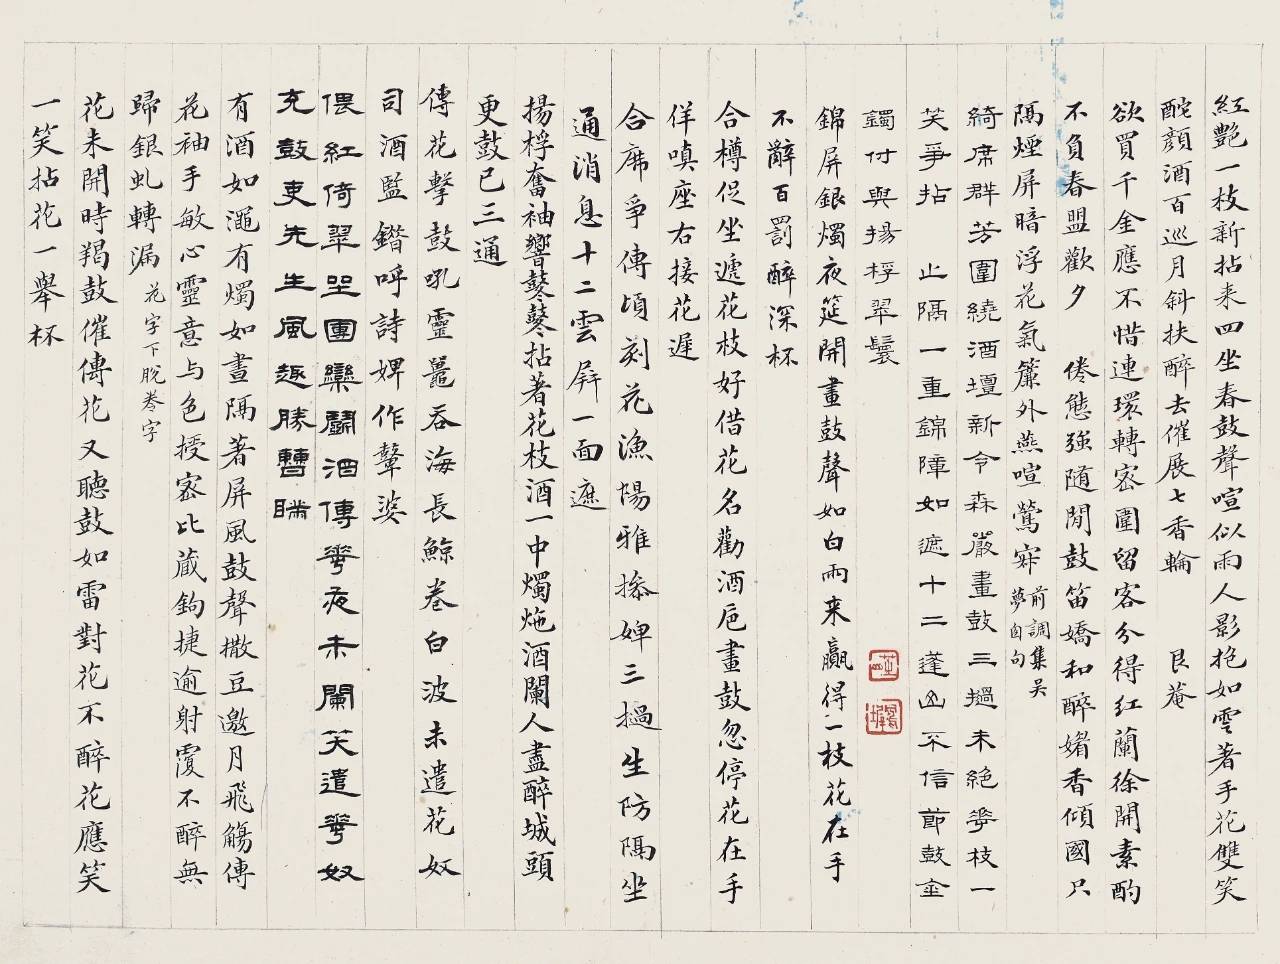 紅艷一枝新拈来四坐春鼓聲喧似雨人影抱如雲著手花雙笑
酡顏酒百巡月斜扶醉去催展七香輪 艮菴
欲買千金應不惜連環轉密圍留客分得紅蘭徐開素酌
不負春盟歡夕 倦態強随閒鼓笛嬌和醉媎香傾國只
隔煙屏暗浮花氣簾外燕喧鶯寂
前調集吳
夢窗句
綺席群芳圍繞酒壇新令森嚴畫鼓三撾未絕花枝一
笑爭拈 止隔一重錦障如遮十二蓬山不信節鼓金
鐲付與揚桴翠鬟
錦屏銀燭夜筵開畫鼓聲如白雨来贏得一枝花在手
不辭百罰醉深杯
合樽促坐遞花枝好借花名勸酒巵畫鼓忽停花在手
佯嗔座右接花遲
合席爭傳頃刻花漁陽雅摻婢三撾生防隔坐
通消息十二雲屏一面遮
揚桴奮袖響鼕鼕拈著花枝酒一中燭灺酒闌人盡醉城頭
更鼓已三通
傳花擊鼓吼靈鼉吞海長鯨卷白波未遣花奴
司酒監鐕呼詩婢作鼙婆
偎紅倚翠坐團欒鬭酒傳花夜未闌笑遣花奴
充鼓吏先生風趣勝曹瞞
有酒如澠有燭如晝隔著屏風鼓聲撒豆邀月飛觴傳
花袖手敏心靈意与色授密比藏鉤捷逾射覆不醉無
歸銀虬轉漏 花字下脫劵字
花未開時羯鼓催傳花又聽鼓如雷對花不醉花應笑
一笑拈花一舉杯